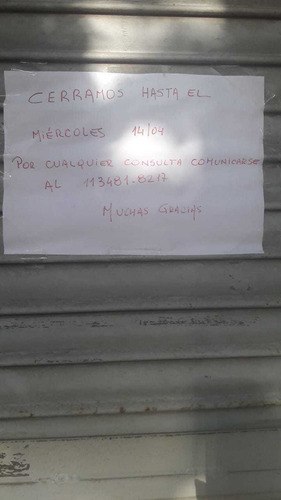 CERRAMOS HASTA EL
MIÉRCOLES 14/04
POR CUALQUIER CONSULTA COMUNICARSE
AL 113481-8217
MUCHAS GRACIAS